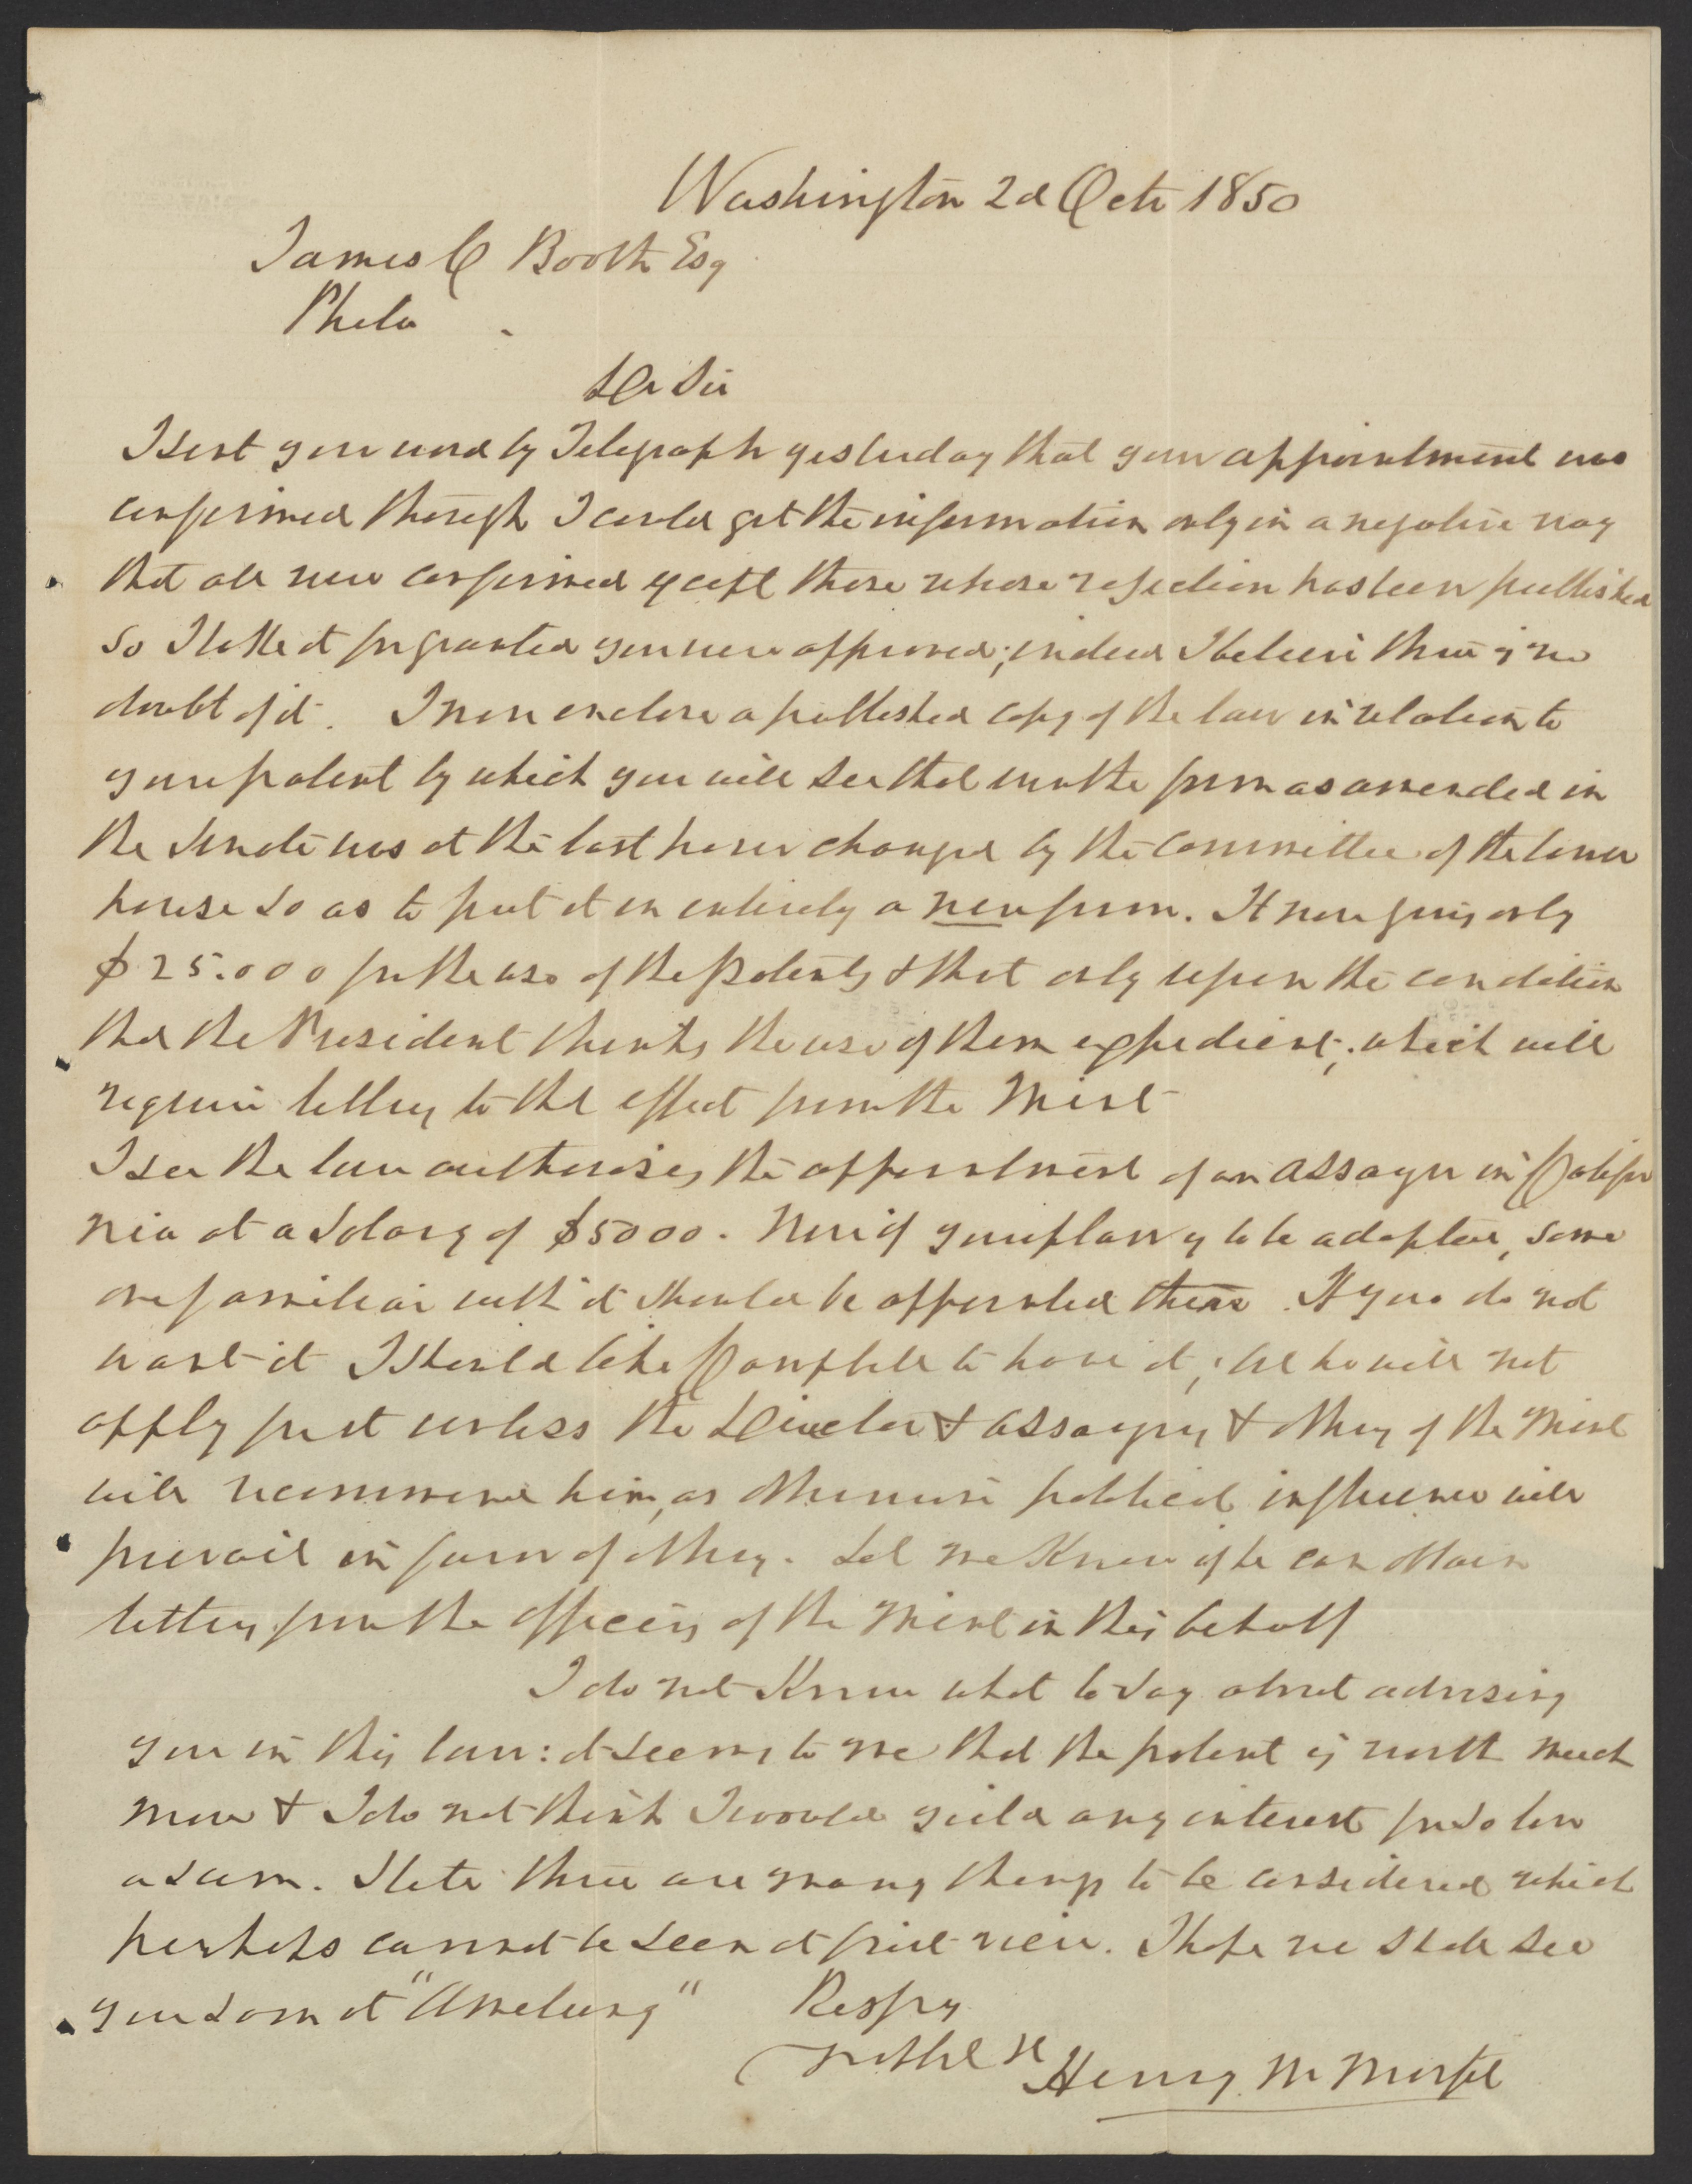 Washington 2d Octr 1850
James C Booth Esq
Phila
Dr Sir
I sent you word by Telegraph yesterday that your appointment was
confirmed though I could get the information only in a negative way
that all were confirmed except those whose rejection has been published
so I take it for granted you were approved; indeed I believe there is no
doubt of it. I now enclose a published copy of the law in relation to
your patent by which you will see that the form as amended in
the Senate was at the last hour changed by the committee of the lower
house so as to put it in entirely a new form. It now gives only
$25.000 for the use of the patents & that only upon the condition
that the President thinks the use of them expedient; which will
require letters to that effect from the Mint
I see the law authorises the appointment of an assayer in Califor
nia at a salary of $5000. Now if your plan is to be adopted, some
one familiar with it should be appointed there. If you do not
want it I should like Campbell to have it; but he will not
apply for it unless the Director & assayers & others of the Mint
will recommend him, as otherwise political influence will
prevail in favor of others. Let me know if he can obtain
letters from the officers of the Mint in this behalf
I do not know what to say about advising
you in this law: it seems to me that the patent is worth much
more & I do not think I would yield any interest for so low
a sum. But there are many things to be considered which
perhaps cannot be seen at first view. I hope we shall see
you soon at "Amelung"
Respy
Henry M